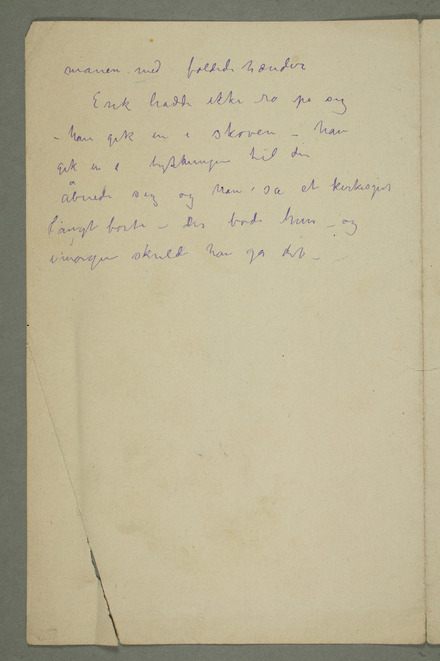 manen med foldede hænder
Erik hadde ikke ro på sig
– han gik en i skoven – han
gik en i tykningen til den
åbnede sig og han så et kirkespir
långt borte – Der bode hun – og
imorgen skulde han ga dit –